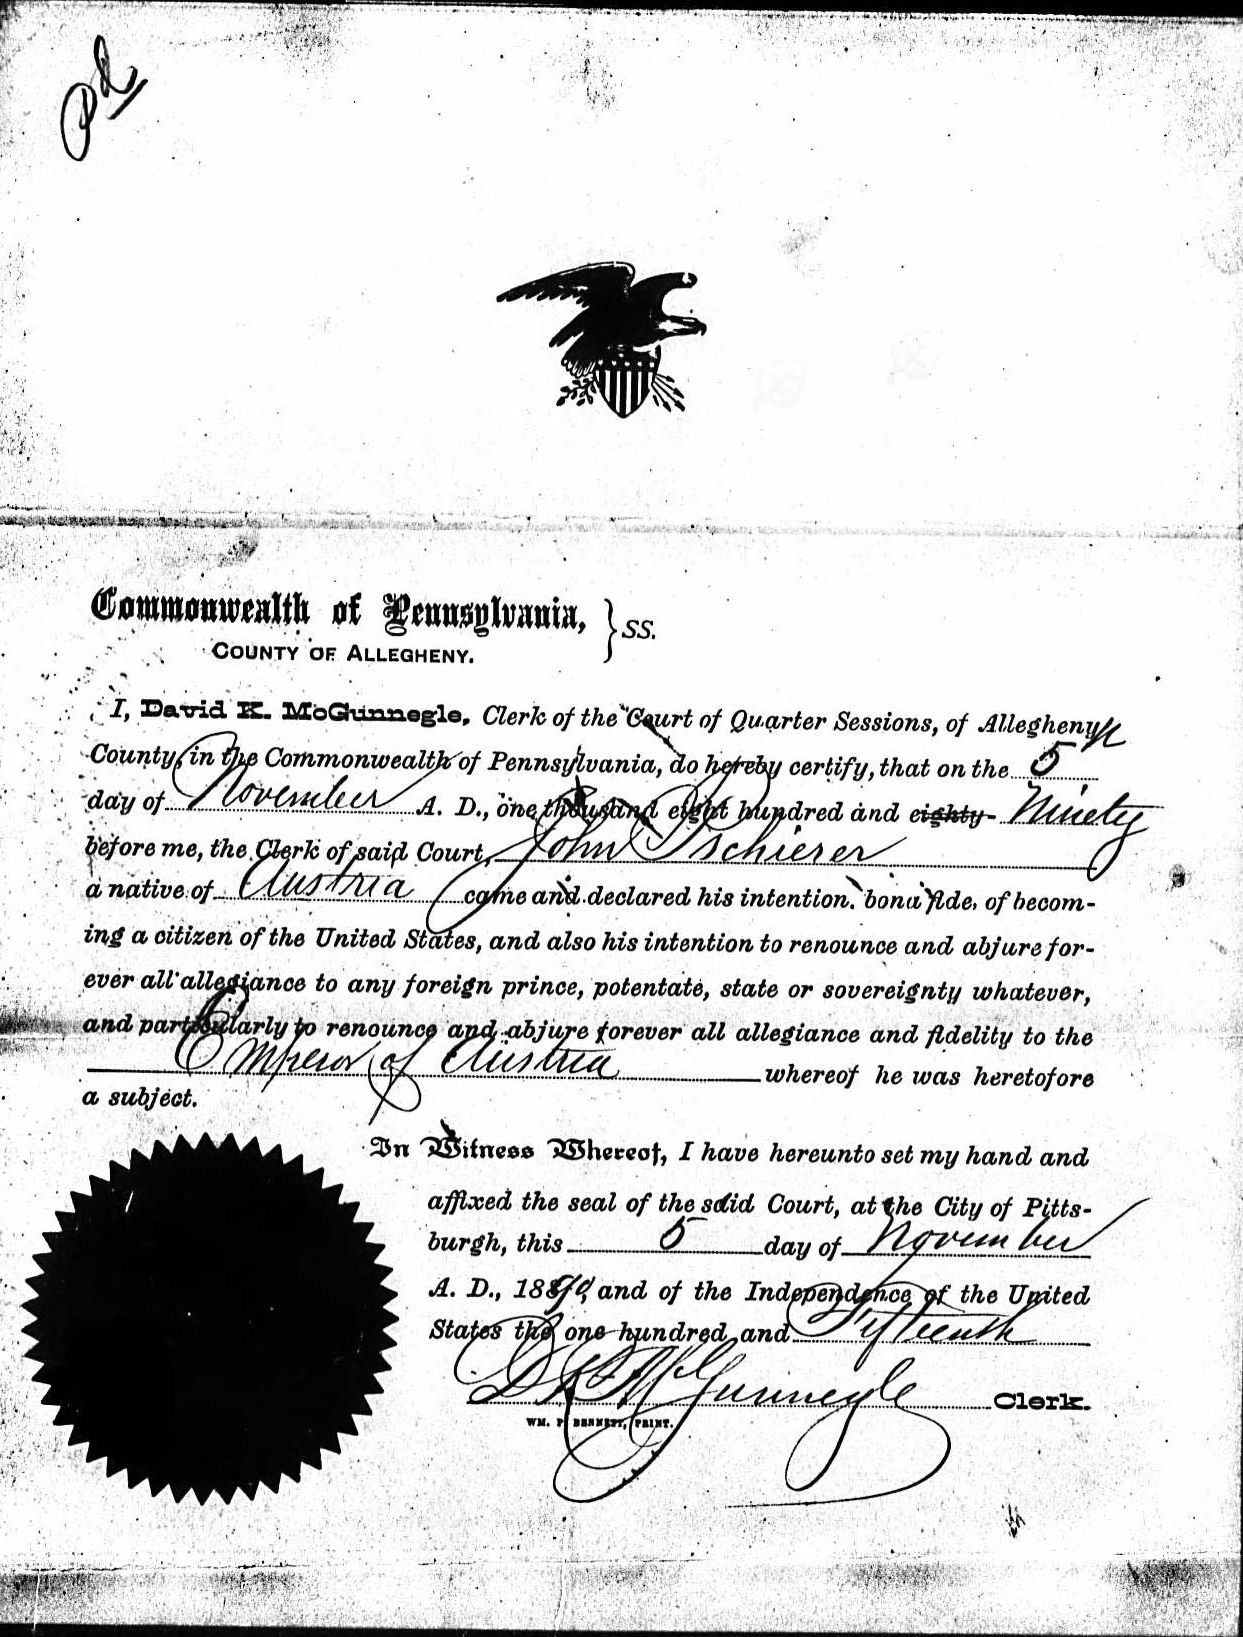 Pd
Commonwealth of Pennsylvania, } SS.
COUNTY OF ALLEGHENY.
I, David K. McGunnegle, Clerk of the Court of Quarter Sessions, of Allegheny
County, in the Commonwealth of Pennsylvania, do hereby certify, that on the 5
day of November A. D., one thousand eight hundred and eighty- Ninety
before me, the Clerk of said Court, John Pschierer
a native of Austria came and declared his intention, bona fide, of becom-
ing a citizen of the United States, and also his intention to renounce and abjure for-
ever all allegiance to any foreign prince, potentate, state or sovereignty whatever,
and particularly to renounce and abjure forever all allegiance and fidelity to the
Emperor of Austria whereof he was heretofore
a subject.
In Witness Whereof, I have hereunto set my hand and
affixed the seal of the said Court, at the City of Pitts-
burgh, this 5 day of November
A. D., 1890, and of the Independence of the United
States the one hundred and Fifteenth
D K McGunnegle Clerk.
WM. P. BENNETT, PRINT.